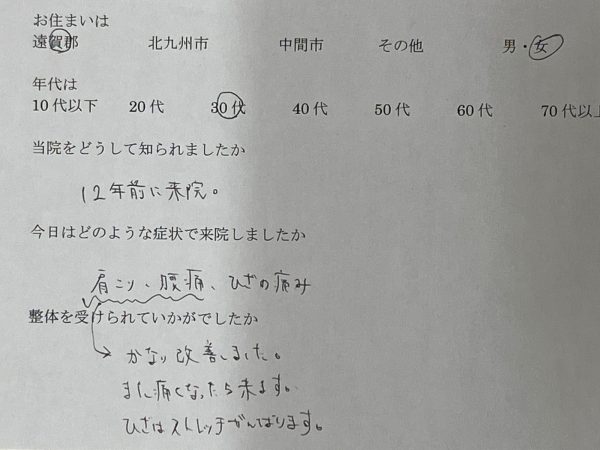 お住まいは
遠賀郡 北九州市 中間市 その他 男・女
年代は
10代以下 20代 30代 40代 50代 60代 70代以上
当院をどうして知られましたか
12年前に来院。
今日はどのような症状で来院しましたか
肩こり、腰痛、ひざの痛み
整体を受けられていかがでしたか
かなり改善しました。
また痛くなったら来ます。
ひざはストレッチがんばります。